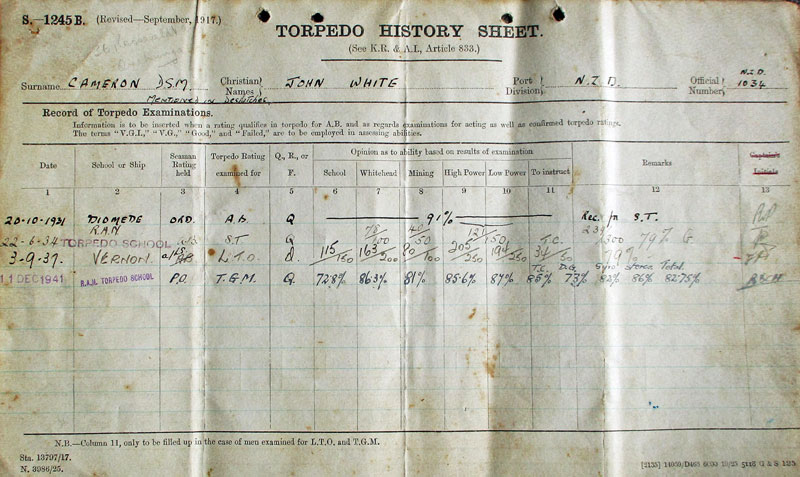 S.—1245 B. (Revised—September, 1917.)
TORPEDO HISTORY SHEET.
(See K.R. & A.I., Article 833.)
Surname CAMERON DSM. Christian Names JOHN WHITE Port Division N.Z.D. Official Number N.Z.D. 1034
MENTIONED IN DESPATCHES
Record of Torpedo Examinations.
Information is to be inserted when a rating qualifies in torpedo for A.B. and as regards examinations for acting as well as confirmed torpedo ratings.
The terms "V.G.I.," "V.G.," "Good," and "Failed," are to be employed in assessing abilities.
Date School or Ship Seaman Rating held Torpedo Rating examined for Q., R., or F. Opinion as to ability based on results of examination Remarks Captain's Initials
School Whitehead Mining High Power Low Power To instruct
1 2 3 4 5 6 7 8 9 10 11 12 13
20-10-1931 DIOMEDE ORD. A.B. Q 91% Rec. for S.T.
22-6-34 R.A.N TORPEDO SCHOOL S.T. Q 40/50 T.C. 79% G
3-9-37 VERNON L.T.O. 115/150 163/200 80/100 205/250 194/250 34/50 79%
11 DEC 1941 R.A.N. TORPEDO SCHOOL P.O. T.G.M. Q. 72.8% 86.3% 81% 85.6% 87% T.C. 85% D.G. 73% Gyro 82% Stereo 86% Total 82.75%
N.B.—Column 11, only to be filled up in the case of men examined for L.T.O. and T.G.M.
Sta. 13797/17.
N. 3986/25.